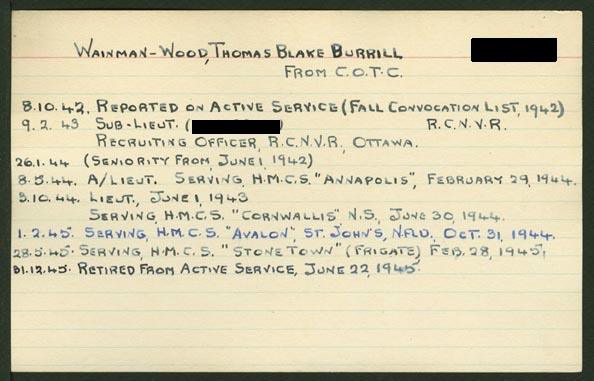 WAINMAN-WOOD, THOMAS BLAKE BURRILL
FROM C.O.T.C.
8.10.42. REPORTED ON ACTIVE SERVICE (FALL CONVOCATION LIST, 1942)
9.2.43 SUB-LIEUT. ( ) R.C.N.V.R.
RECRUITING OFFICER, R.C.N.V.R., OTTAWA.
26.1.44 (SENIORITY FROM, JUNE 1, 1942)
8.5.44. A/LIEUT. SERVING, H.M.C.S. "ANNAPOLIS", FEBRUARY 29, 1944.
3.10.44 LIEUT., JUNE 1, 1943
SERVING, H.M.C.S. "CORNWALLIS" N.S., JUNE 30, 1944.
1.2.45. SERVING, H.M.C.S. "AVALON", ST. JOHN'S, NFLD, OCT. 31, 1944.
28.5.45. SERVING, H.M.C.S. "STONE TOWN" (FRIGATE) FEB. 28, 1945,
31.12.45. RETIRED FROM ACTIVE SERVICE, JUNE 22, 1945.